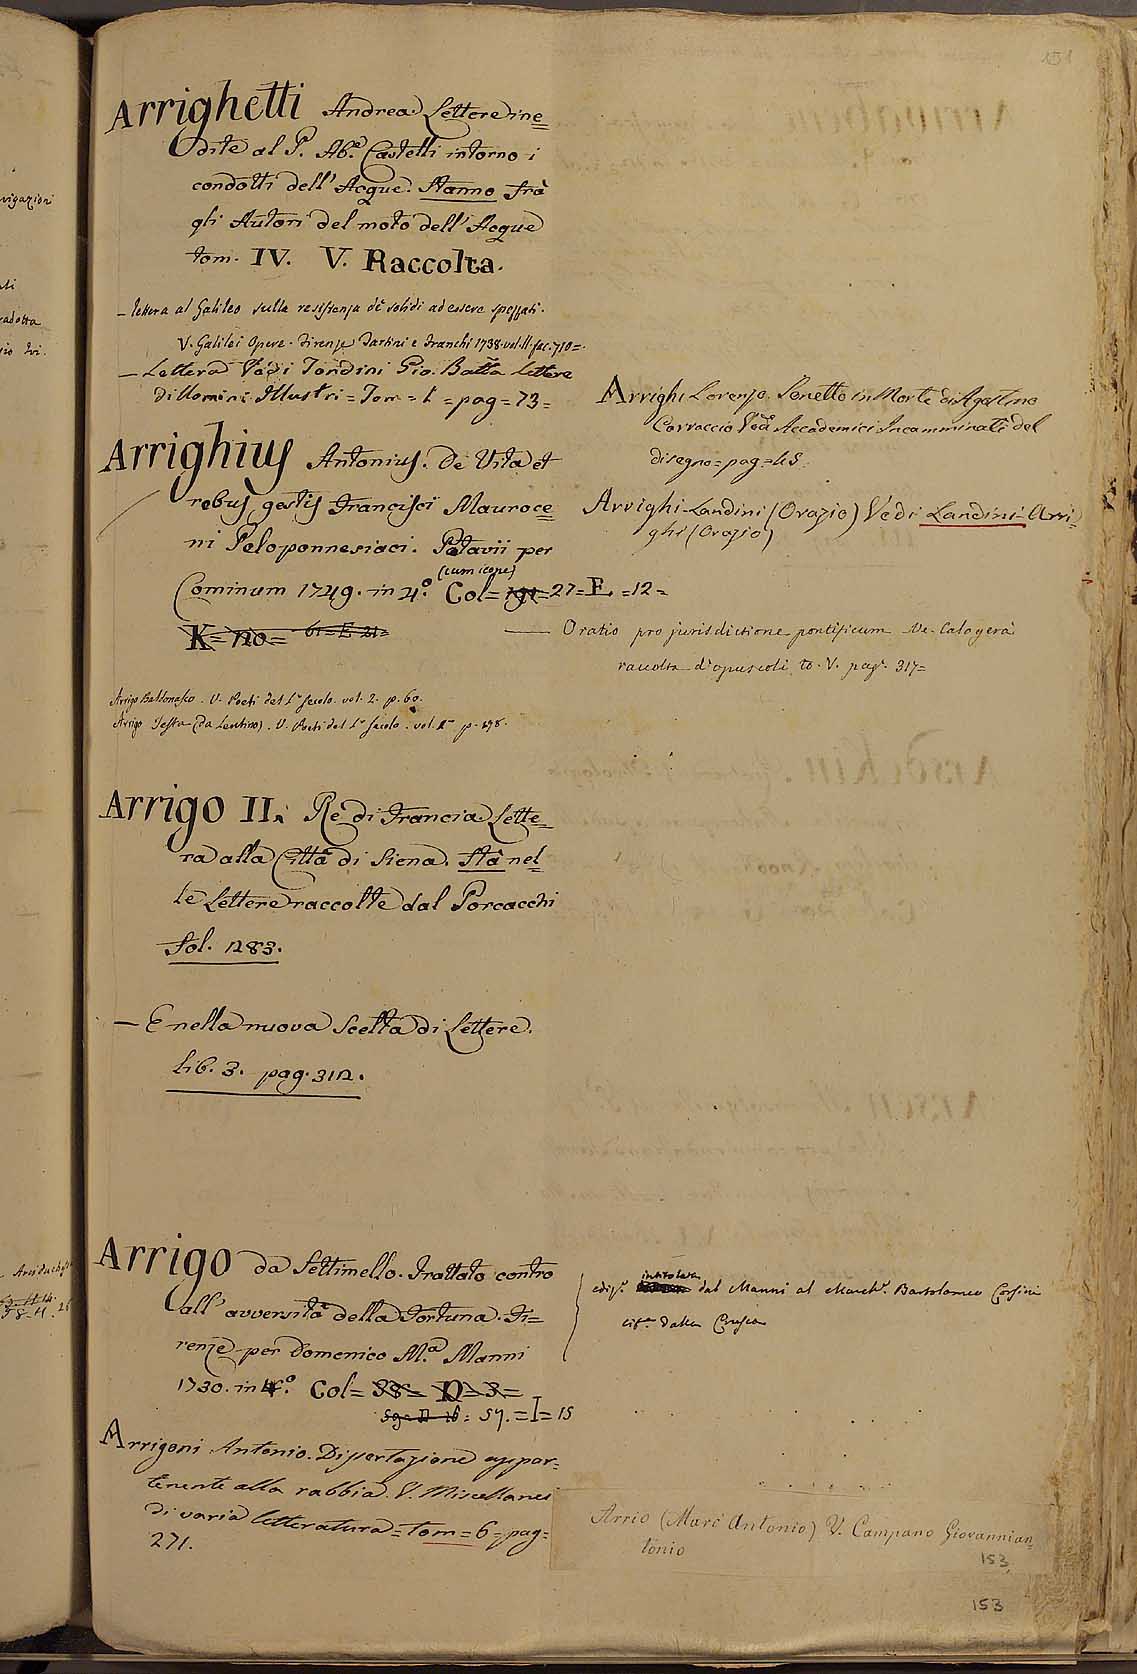 Arrighetti Andrea Lettere ine=
dite al P. Ab.e Castelli intorno i
condotti dell'Acque. Stanno frà
gli Autori del moto dell'Acque
tom. IV. V. Raccolta.
— lettera al Galileo sulla resistenza de solidi ad essere spezzati.
V. Galilei Opere. Firenze Tartini e Franchi 1738. vol. II. fac. 710=.
— Lettera Vedi Fondini Gio. Batta Lettere
di Uomini Illustri = Tom = I = pag = 73 =
Arrighius Antonius. De Vita et
rebus gestis Francisci Mauroce=
ni Peloponnesiaci. Patavii per
(cum icone)
Cominum 1749. in 4.° Col= 191= 27= E. =12=
K= 120= 61= E 21=
Arrigo Baldonasco. V. Poeti del 1.° secolo. vol. 2. p. 60.
Arrigo Testa (da Lentino). V. Poeti del 1.° secolo. vol. p. 198.
Arrigo II. Rè di Francia Lette=
ra alla Città di Siena. Stà nel=
le Lettere raccolte dal Porcacchi
fol. 1283.
— E nella nuova Scelta di Lettere.
lib. 3. pag. 312.
Arrigo da Settimello. Trattato contro
all'avversità della Fortuna. Fi=
renze per Domenico M.a Manni
1730. in 4.° Col= 38= D= 3=
59= D 16= 57. = I = 15
Arrigoni Antonio. Dissertazione appar=
tenente alla rabbia. V. Miscellanei
di varia letteratura = tom = 6 = pag=
271.
Arrighi Lorenzo. Sonetto in Morte di Agostino
Carraccio Vedi Accademici Incamminati del
disegno = pag = 45.
Arrighi-Landini (Orazio) Vedi Landini-Arri=
ghi (Orazio)
— Oratio pro jurisdictione pontificum Ve. Calogerà
raccolta d'opuscoli to. V. pag. 317=
intitolata
ediz.e dal Manni al March.e Bartolomeo Corsini
cit.a dalla Crusca
Arrio (Marc'Antonio) V. Campano Giovannian=
tonio
153
153